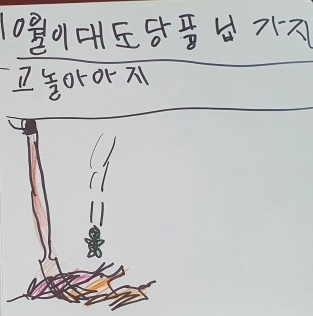 10월이대도당품넙 가지
고놀아아지